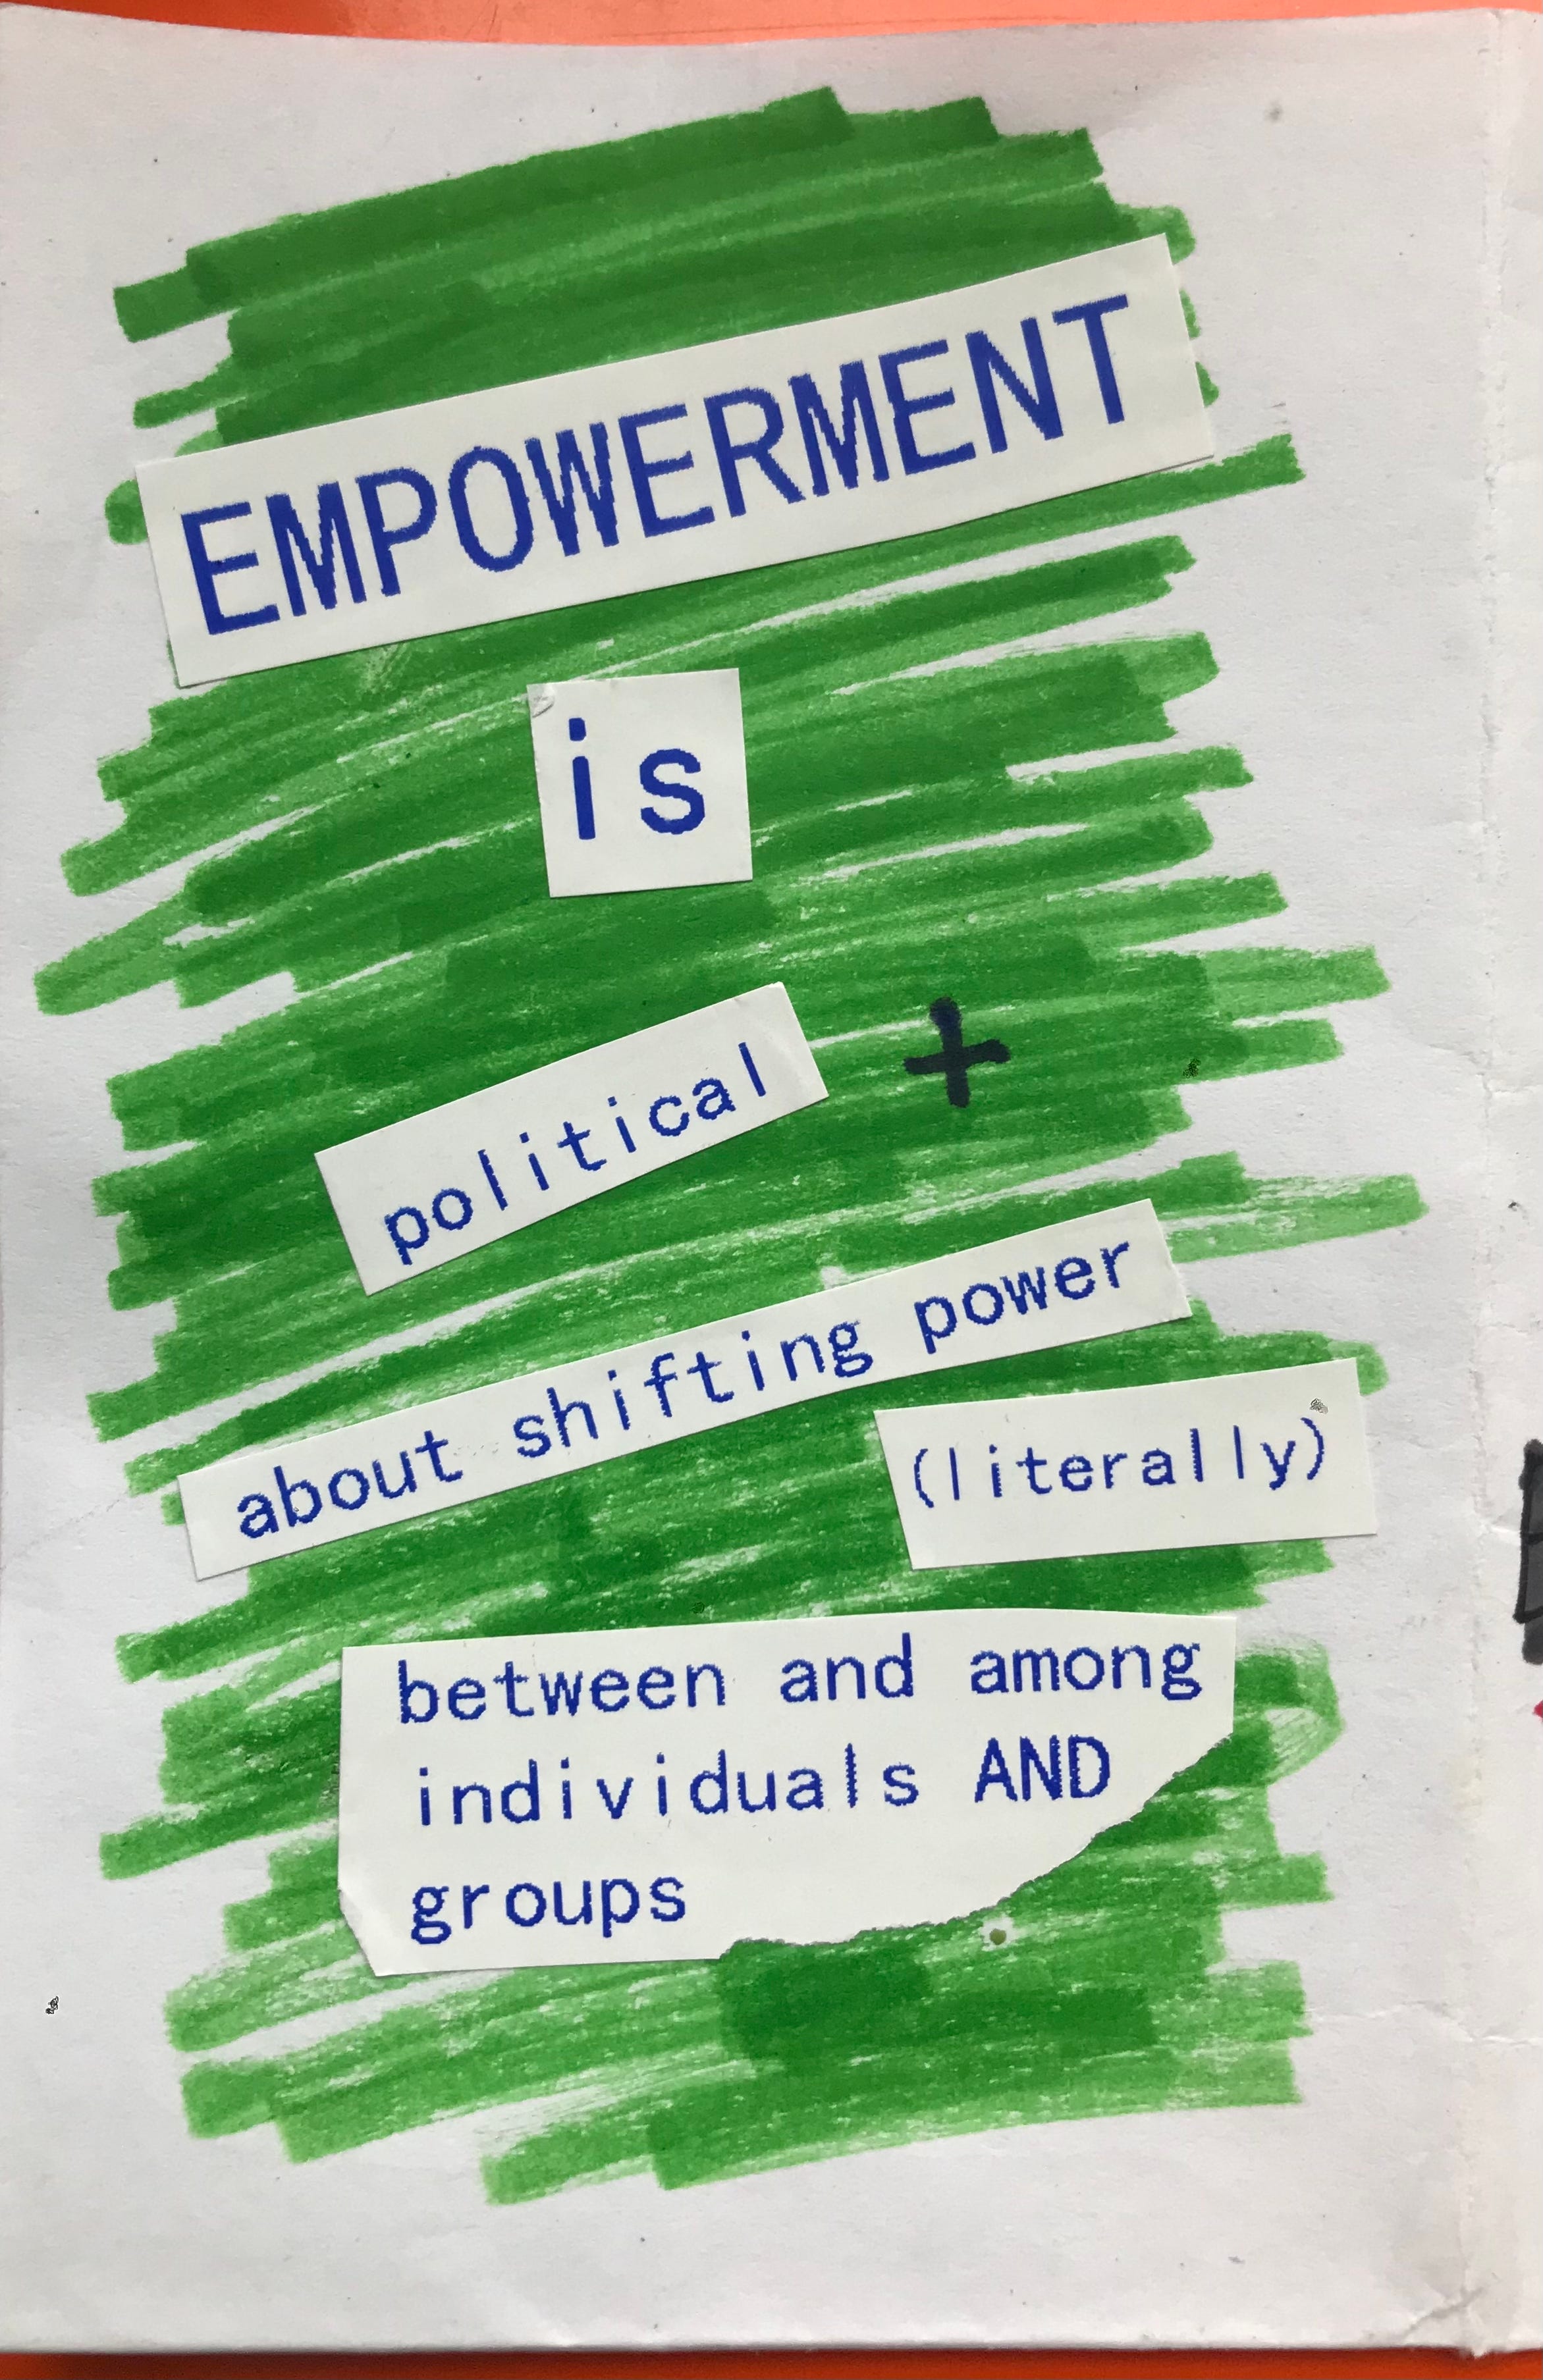 EMPOWERMENT
is
political +
about shifting power
(literally)
between and among
individuals AND
groups